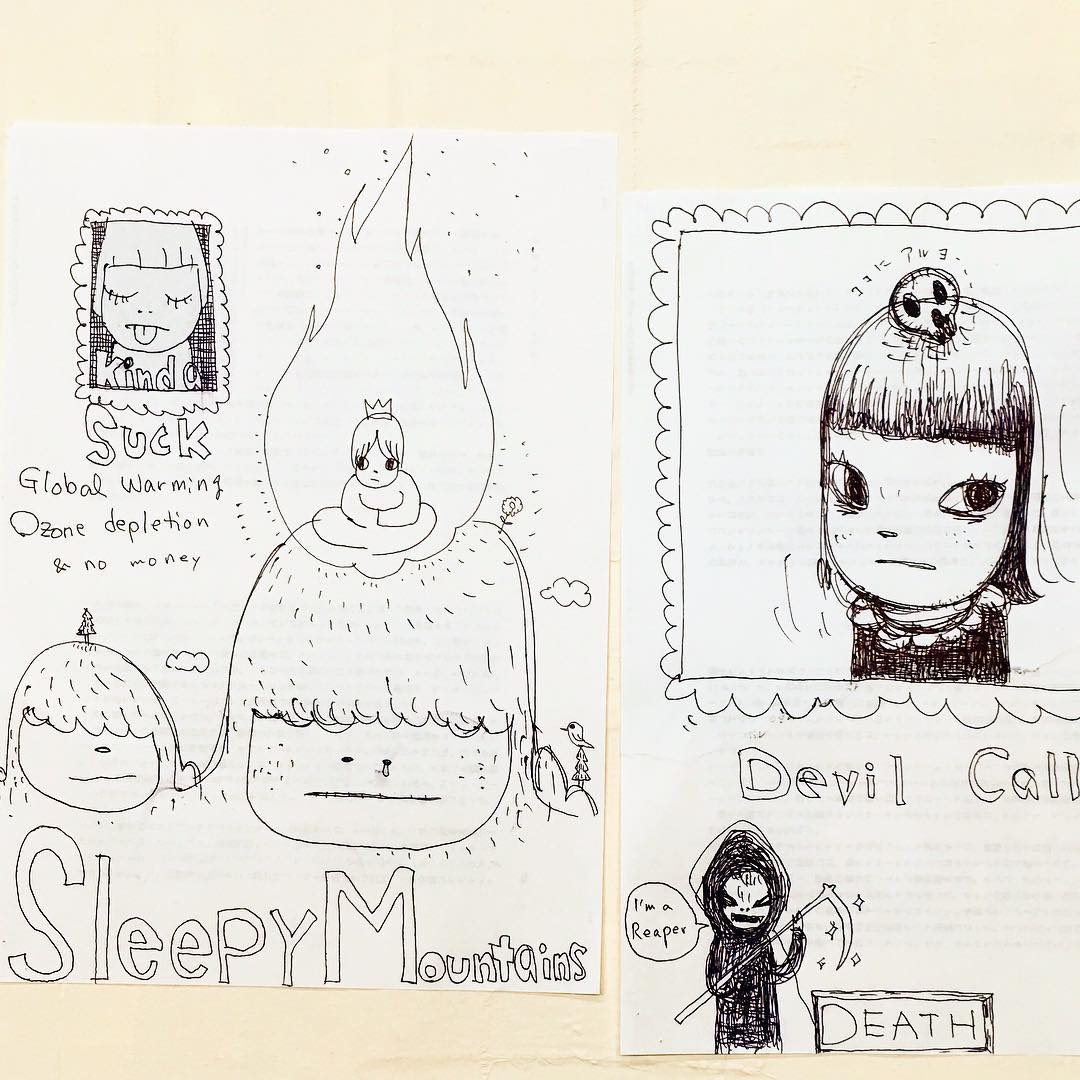 Kinda
Suck
Global Warming
Ozone depletion
& no money
Sleepy Mountains
ココにアルヨー
Devil Call
I'm a
Reaper
DEATH